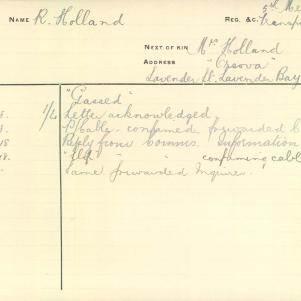 NAME R. Holland
REG. &C.
NEXT OF KIN Mrs Holland
ADDRESS "Orsova"
Lavender St. Lavender Bay
"Gassed"
Letter acknowledged
Cable confirmed forwarded
Reply from Comms. Information
confirming cable
Same forwarded Inquirer.